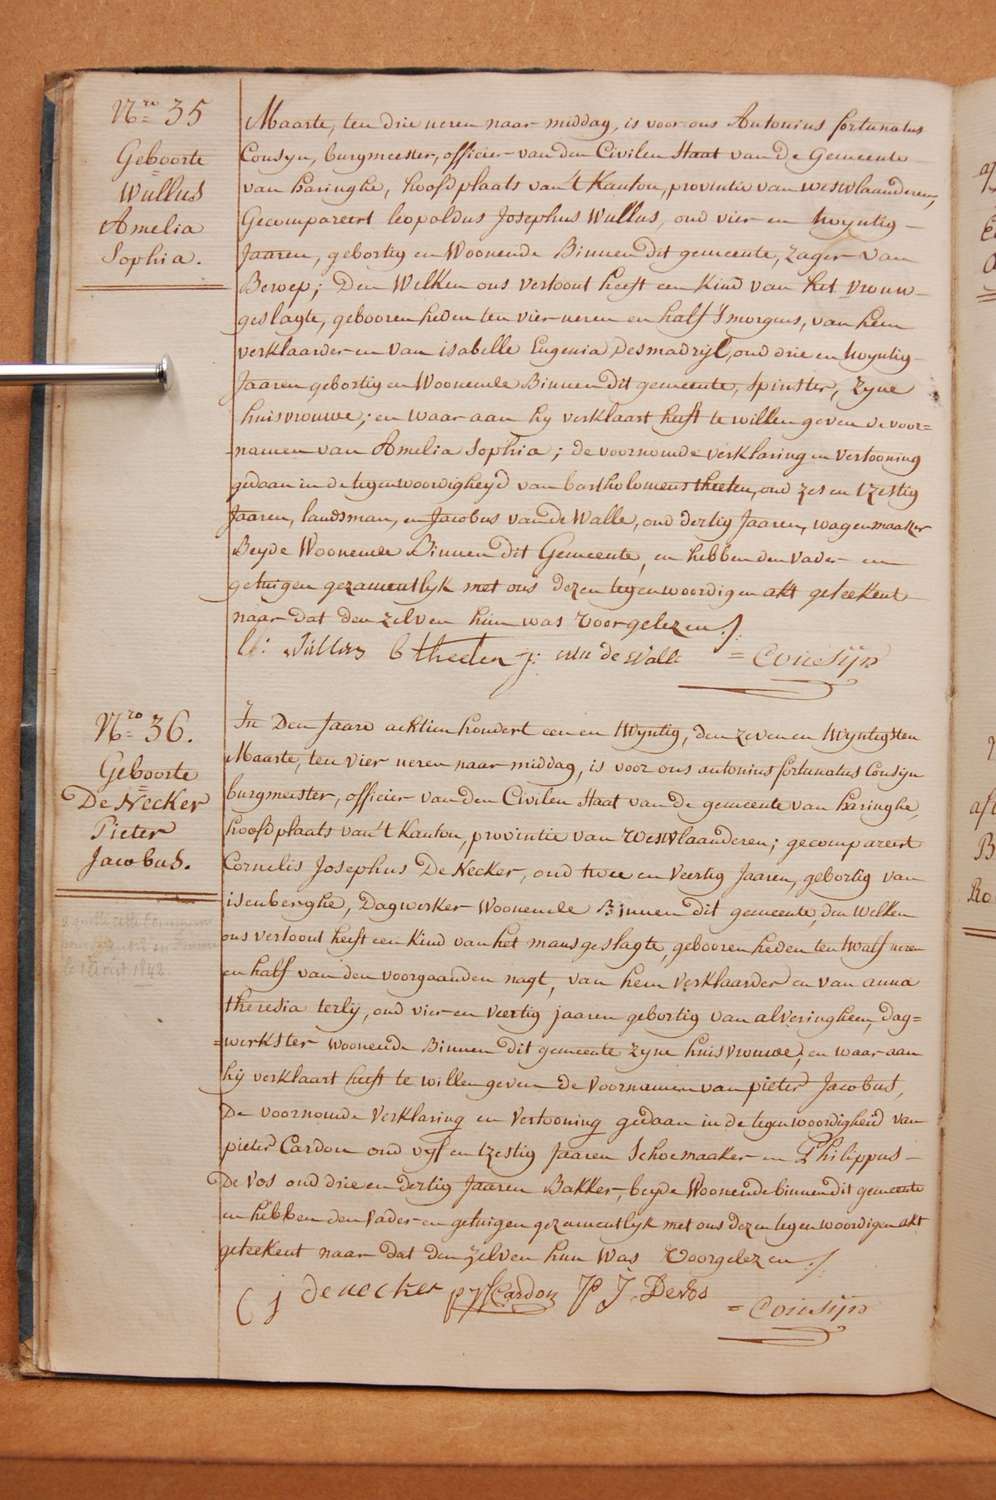 Nro 35
Geboorte
Wullus
Amelia
Sophia.
Maarte, ten drie ueren naar middag, is voor ons Antonius fortunatus
Cousyn, burgmeester, officier van den Civilen Staat van de Gemeente
van haringhe, hoofdplaats van't Kanton, provintie van westvlaanderen,
Gecompareert leopoldus Josephus Wullus, oud vier en twyntig
Jaaren, gebortig en Woonende Binnen dit gemeente, zager van
Beroep; Den Welken ons vertoont heeft een kind van het vrouw-
geslagte, gebooren heden ten vier ueren en half S'morgens, van hem
verklaarder en van isabelle Eugenia Desmadryl, oud drie en twyntig
Jaaren gebortig en Woonende Binnen dit gemeente, Spinster, Zyne
huisvrouwe; en waar aan hy verklaart heeft te willen geven de voor=
namen van Amelia Sophia; de voornoemde verklaring en vertooning
gedaan in de tegenwoordigheyd van bartholomeus theeten, oud zes en tzestig
Jaaren, landsman, en Jacobus van de Walle, oud dertig Jaaren, wagenmaaker
Beyde Woonende Binnen dit Gemeente, en hebben den vader en
getuigen gezamentlyk met ons dezen tegenwoordigen akt geteekent
naar dat den zelven hun was voorgelezen ./.
Wullus b theeten j: van de Walle = Cousijn
Nro 36.
Geboorte
De Necker
Pieter
Jacobus.
In Den Jaare acktien hondert een en twyntig, den zeven en twyntigsten
Maarte, ten vier ueren naar middag, is voor ons antonius fortunatus Cousyn
burgmeester, officier van den Civilen Staat van de gemeente van haringhe,
hoofdplaats van't Kanton, provintie van Westvlaanderen; gecompareert
Cornelis Josephus De Necker, oud twee en veertig Jaaren, gebortig van
isenberghe, Dagwerker Woonende Binnen dit gemeente, den Welken
ons vertoont heeft een kind van het mansgeslagte, gebooren heden ten twalf ueren
en half van den voorgaanden nagt, van hem verklaarder en van anna
theresia terly, oud vier en veertig jaaren gebortig van alveringhem, dag=
=werkster woonende Binnen dit gemeente zyne huisvrouwe, en waar aan
hij verklaart heeft te willen geven de voornamen van pieter Jacobus,
De voornoemde verklaring en vertooning gedaan in de tegenwoordigheid van
pieter Cardon oud vyf en tzestig Jaaren Schoemaaker en Philippus
De Vos oud drie en dertig Jaaren Bakker, beyde Woonende binnen dit gemeente
en hebben den vader en getuigen gezamentlyk met ons dezen tegenwoordigen akt
geteekent naar dat den zelven hun Was Voorgelezen ./.
C j denecker p j Cardon P J. DeVos = Cousijn